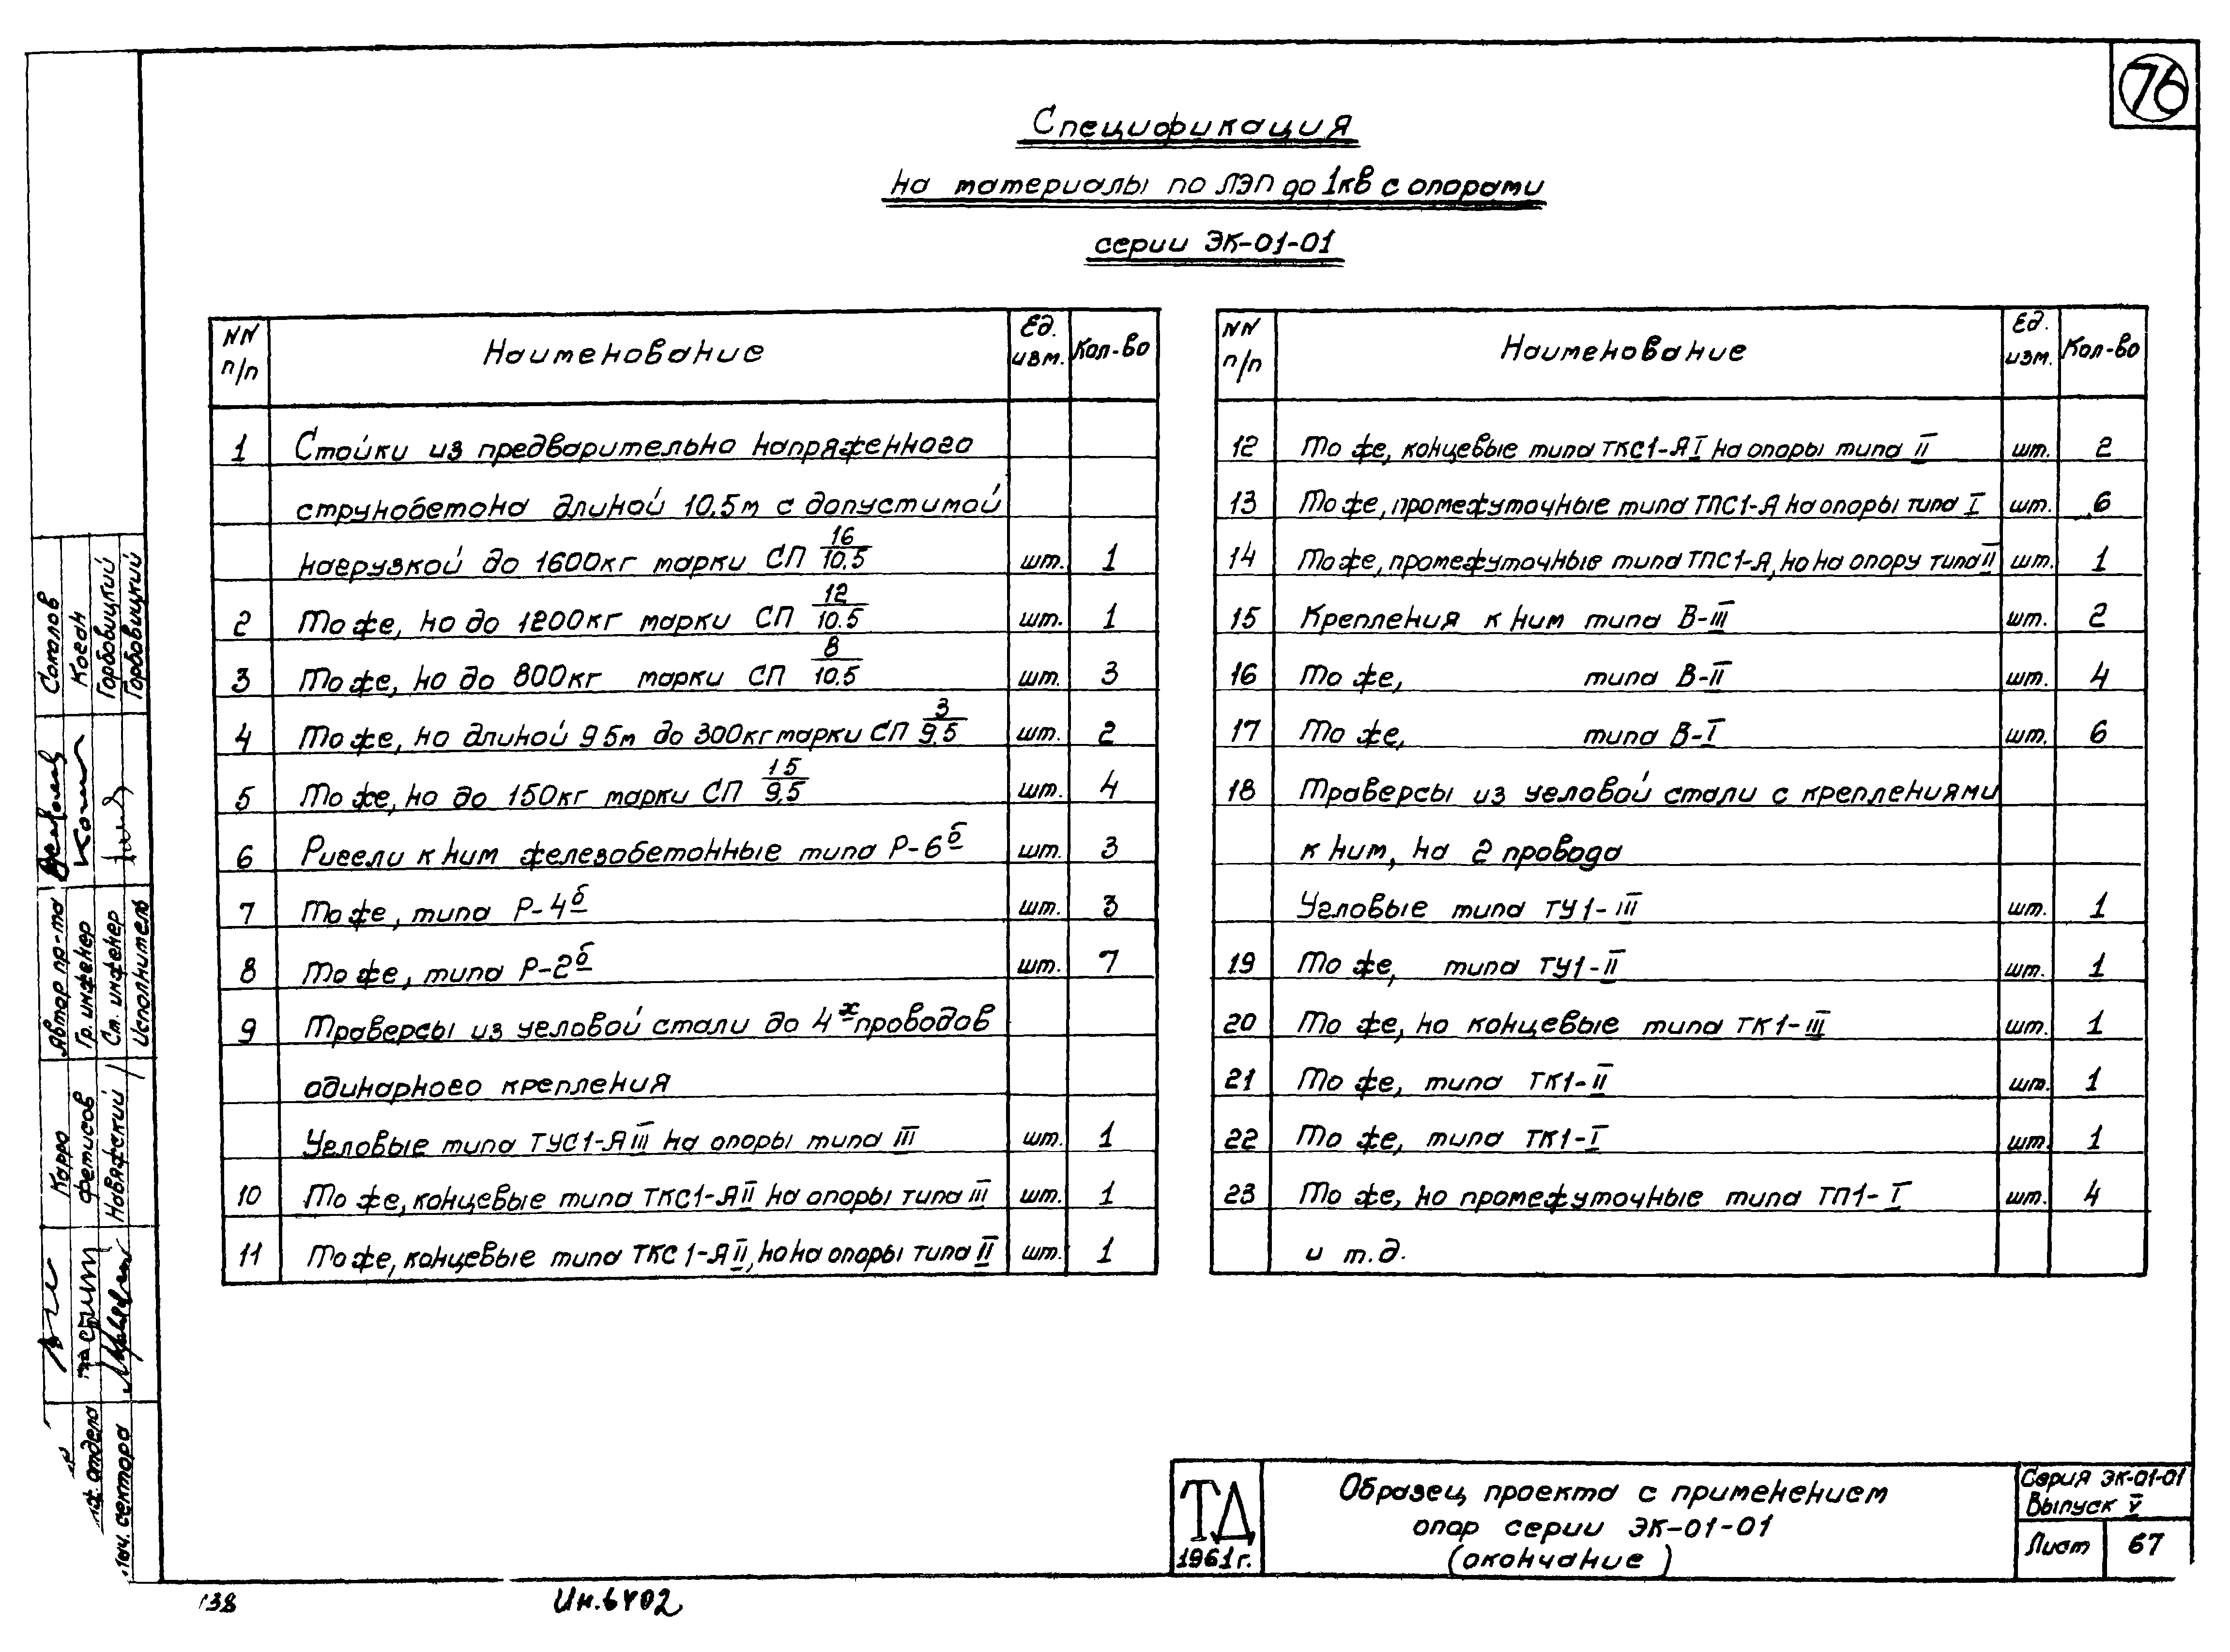 76
Спецификация
на материалы по ЛЭП до 1кв с опорами
серии ЭК-01-01
NN п/п Наименование Ед. изм. Кол-во
1 Стойки из предварительно напряженного
струнобетона длиной 10.5м с допустимой
нагрузкой до 1600кг марки СП 16/10.5 шт. 1
2 То же, но до 1200кг марки СП 12/10.5 шт. 1
3 То же, но до 800кг марки СП 8/10.5 шт. 3
4 То же, но длиной 9 5м до 300кг марки СП 3/9.5 шт. 2
5 То же, но до 150кг марки СП 1 5/9.5 шт. 4
6 Ригели к ним железобетонные типа Р-6б шт. 3
7 То же, типа Р-4б шт. 3
8 То же, типа Р-2б шт. 7
9 Траверсы из угловой стали до 4х проводов
одинарного крепления
Угловые типа ТУС1-ЯIII на опоры типа III шт. 1
10 То же, концевые типа ТКС1-ЯII на опоры типа III шт. 1
11 То же, концевые типа ТКС1-ЯII, но на опоры типа II шт. 1
NN п/п Наименование Ед. изм. Кол-во
12 То же, концевые типа ТКС1-ЯI на опоры типа II шт. 2
13 То же, промежуточные типа ТПС1-Я на опоры типа I шт. 6
14 То же, промежуточные типа ТПС1-Я, но на опору типа II шт. 1
15 Крепления к ним типа В-III шт. 2
16 То же, типа В-II шт. 4
17 То же, типа В-I шт. 6
18 Траверсы из угловой стали с креплениями
к ним, на 2 провода
Угловые типа ТУ1-III шт. 1
19 То же, типа ТУ1-II шт. 1
20 То же, но концевые типа ТК1-III шт. 1
21 То же, типа ТК1-II шт. 1
22 То же, типа ТК1-I шт. 1
23 То же, но промежуточные типа ТП1-I шт. 4
и т.д.
Соколов
Коган
Горбовицкий
Горбовицкий
Автор пр-та
Гр. инженер
Ст. инженер
Исполнитель
Карро
Фетисов
Навяжский
отдела
сектора
ТД
1961г.
Образец проекта с применением
опор серии ЭК-01-01
(окончание)
Серия ЭК-01-01
Выпуск V
Лист 67
138
Ин.6402